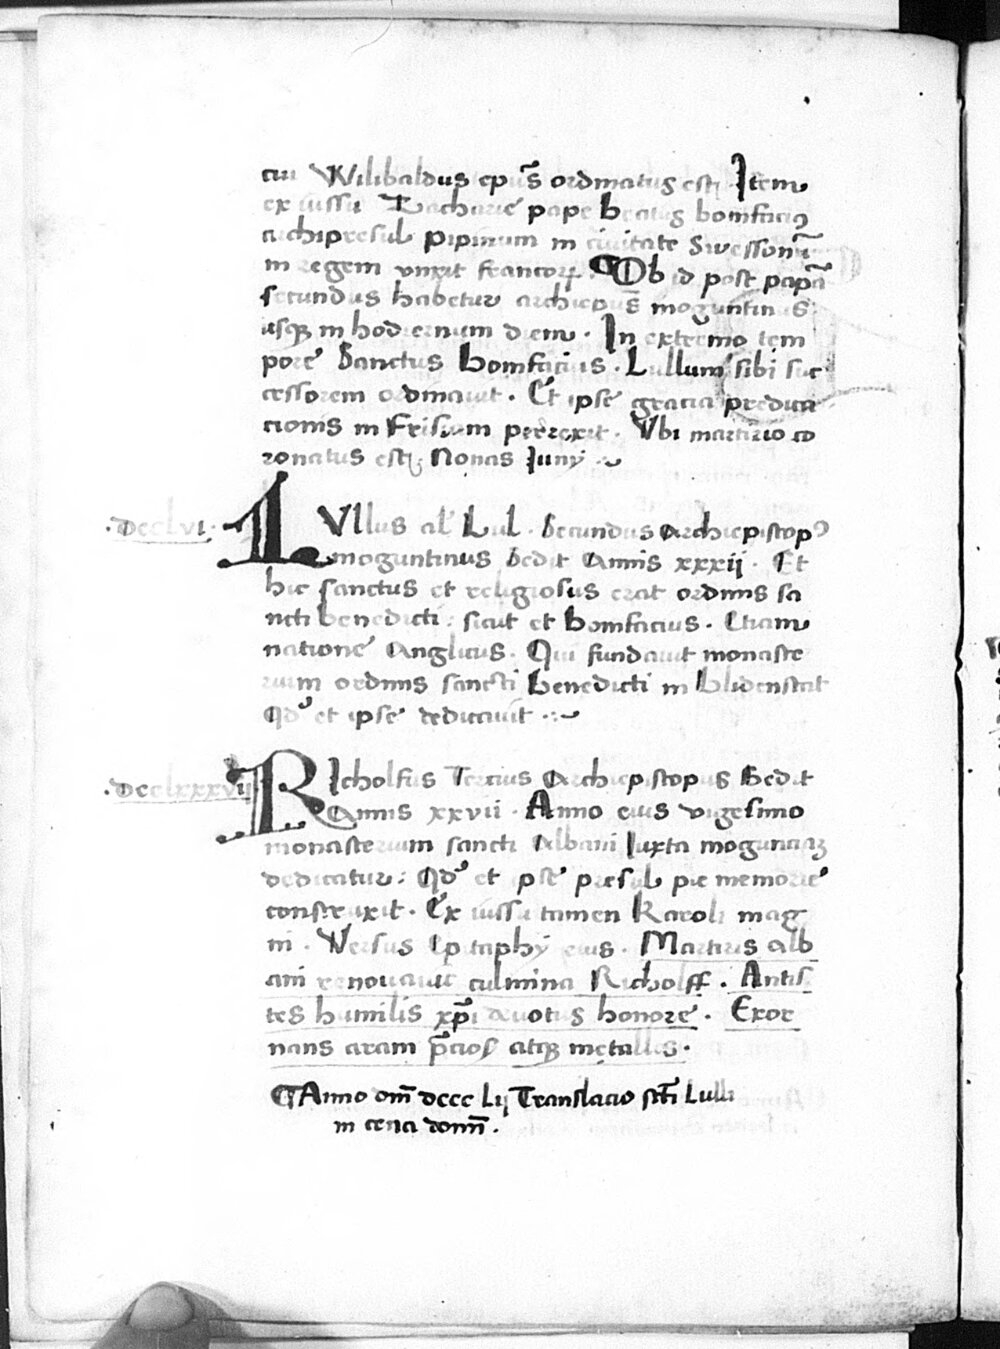 cui Wilibaldus ep̄us ordinatus est. Item
ex iussu Zacharie pape beatus bonifaciꝰ
archipresul pipinum in ciuitate Swessoni̅
in regem vnxit francoꝝ. ¶ Ob id post papā
secundus habetur archiep̄us moguntinus
usqꝫ in hodiernum diem. In extremo tem
pore Sanctus bonifacius. Lullum sibi suc
cessorem ordinauit. Et ipse gracia predica
cionis in Frisiam perrexit. Vbi martirio co
ronatus est. Nonas Iunij
.dcclvi. LVllus al' Lul. Secundus Archiepiscopꝰ
moguntinus Sedit Annis xxxij. Et
hic sanctus et religiosus erat ordinis sa
ncti benedicti. sicut et bonifacius. Etiam
natione Anglicus. Qui fundauit monaste
rium ordinis sancti benedicti in blidenstat
Qd' et ipse dedicauit.
.dcclxxxvij. RIcholfus Tercius Archiepiscopus Sedit
Annis xxvii. Anno eius vigesimo
monasterium sancti Albani Iuxta moguncia3
dedicatur. Qd' et ipse presul pie memorie
construxit. Ex iussu tamen Karoli mag
ni. Versus Epitaphij eius. Martiris alb
ani renouauit culmina Richolff. Antis
tes humilis xp̄i deuotus honore. Exor
nans aram p̄cios atqꝫ metallis.
¶ Anno dn̄i dccc Lij Translacio scti Lulli
in cena domī.